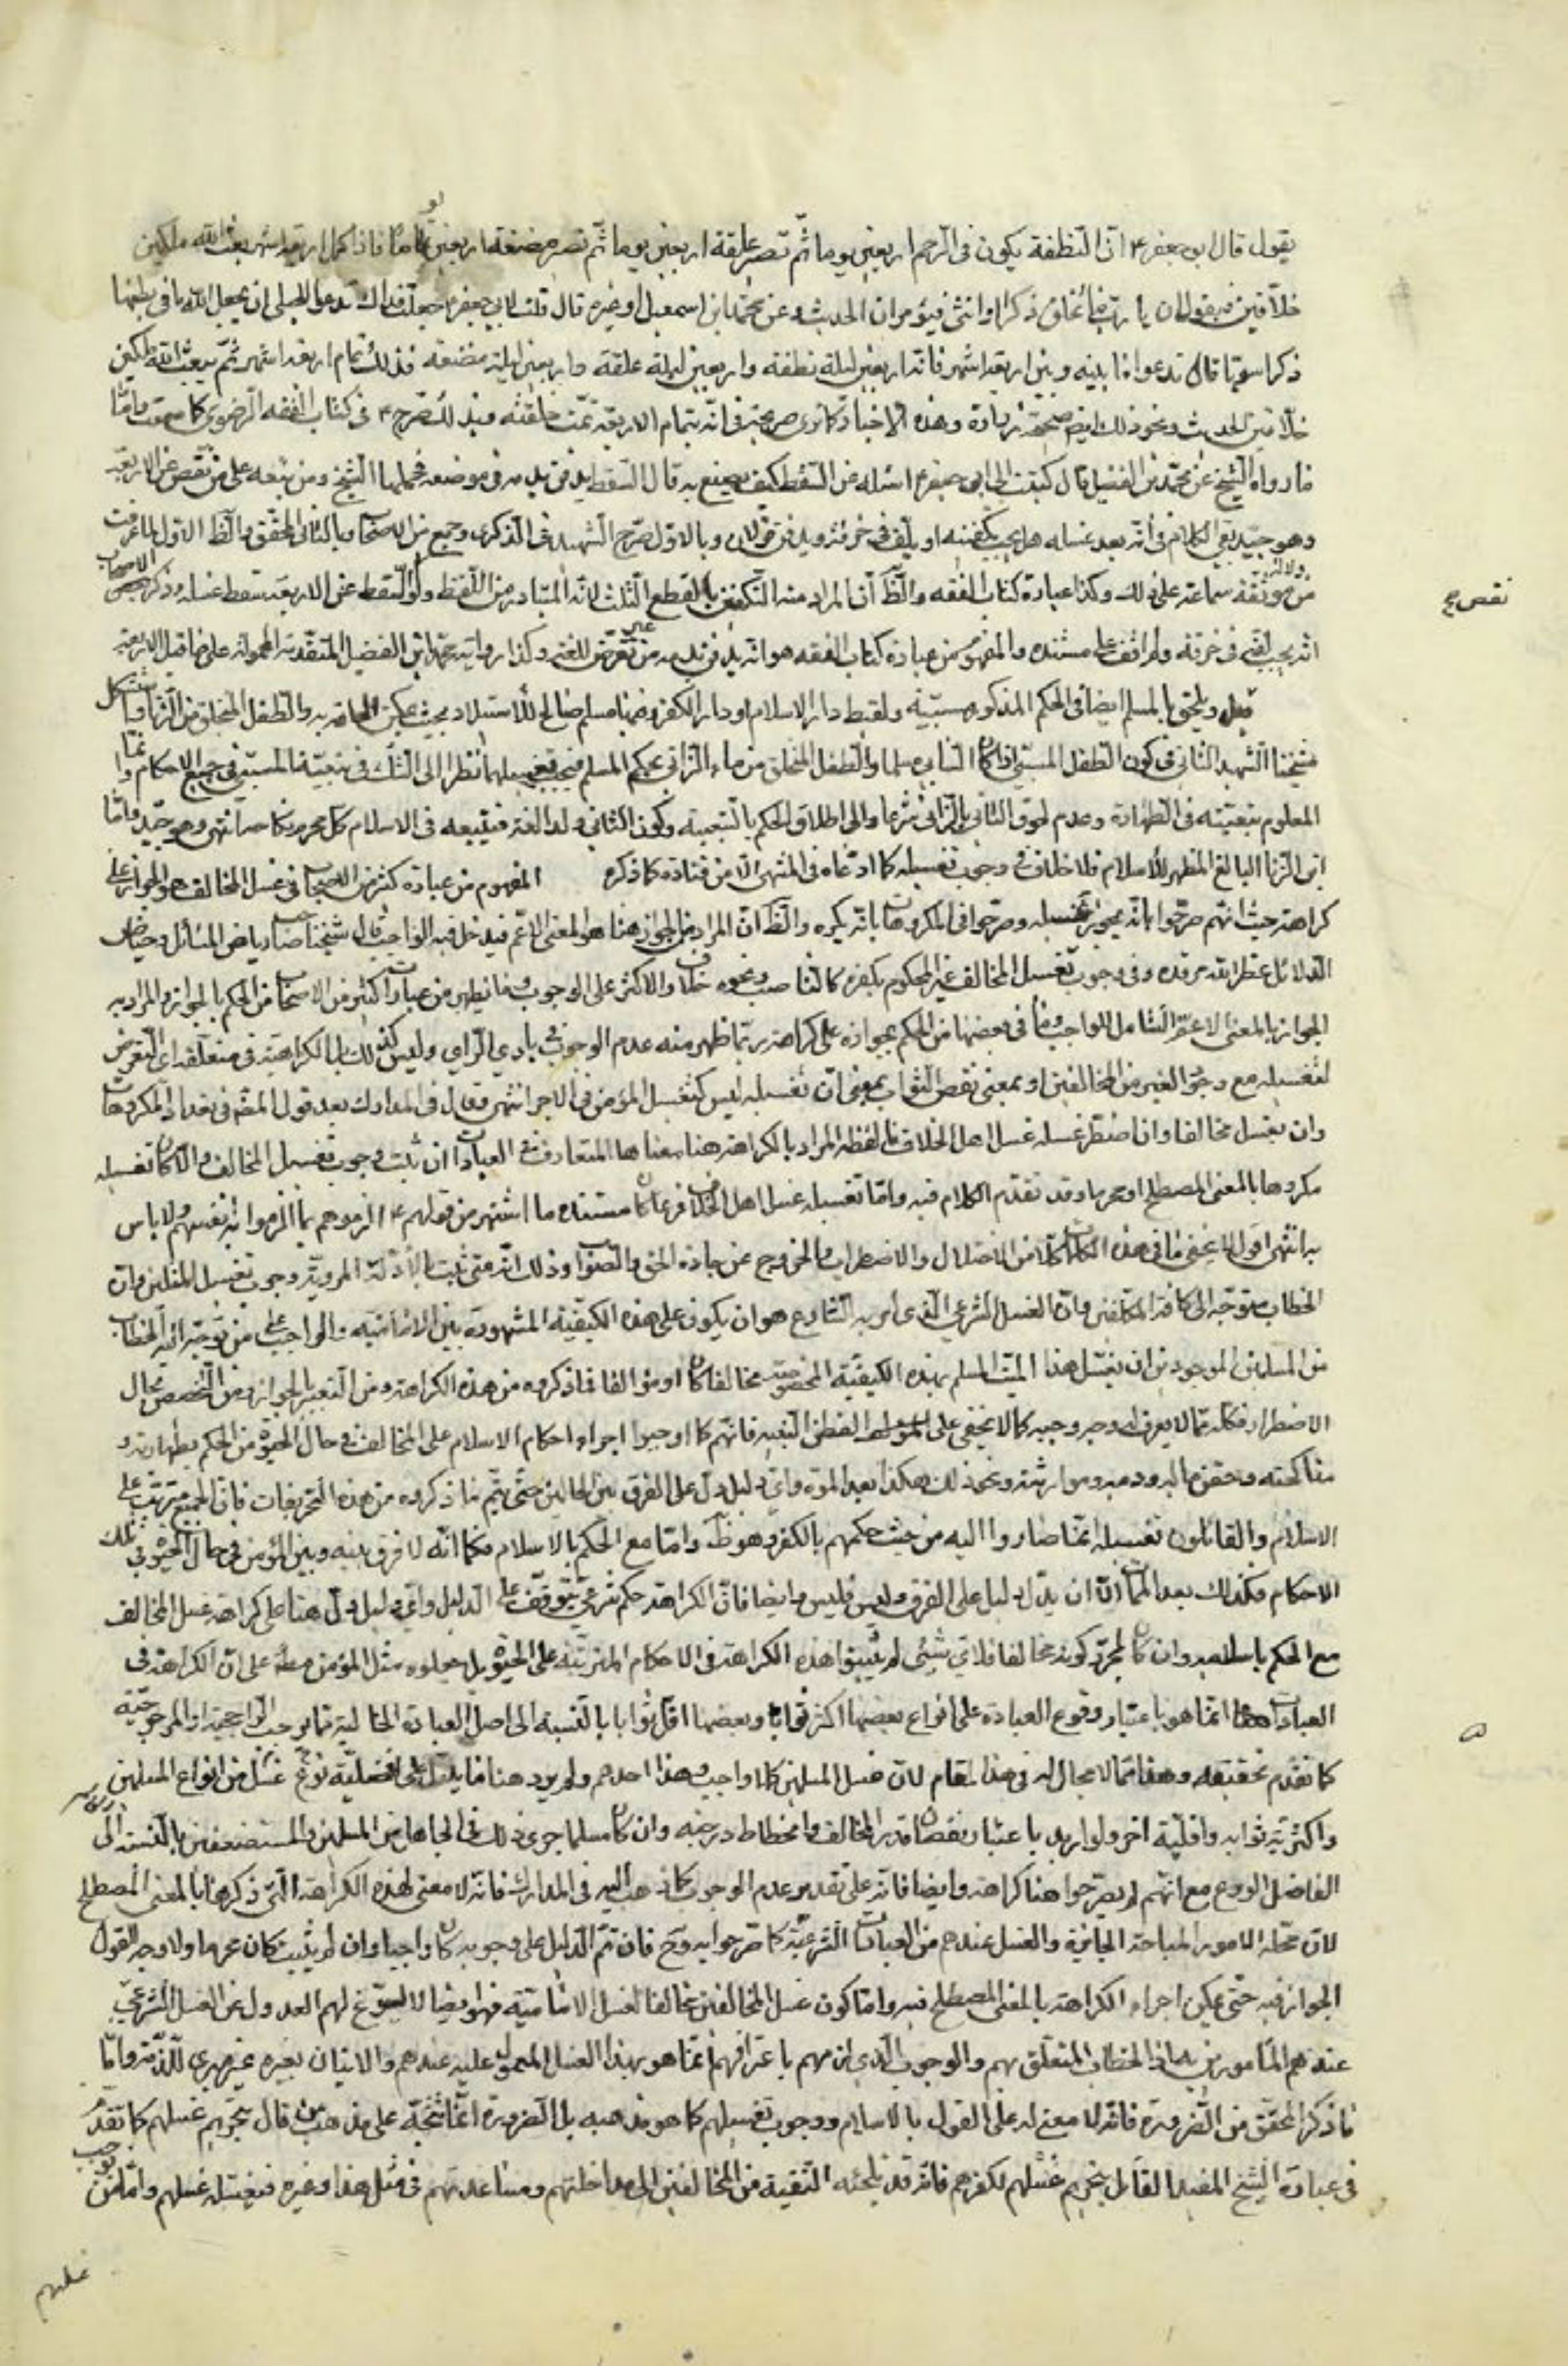 يقول قال ابو جعفر ع ان النطفة يكون فى الرحم اربعين يوما ثم تصير علقة اربعين يوما ثم تصير مضغة اربعين يوما فاذا كمل اربعة اشهر بعث الله ملكين
خلاقين فيقولان يا رب ما تخلق ذكرا او انثى فيؤمران الحديث وعن محمد بن اسمعيل او غيره قال قلت لابى جعفر ع جعلت فداك تدعو للحبلى ان يجعل الله ما فى بطنها
ذكرا سويا قال تدعو ما بينه وبين اربعة اشهر فانه اربعين ليلة نطفة واربعين ليلة علقة واربعين ليلة مضغة فذلك تمام اربعة اشهر ثم يبعث الله ملكين
خلاقين الحديث ونحو ذلك ايضا صحيحة زرارة وهذه الاخبار كما ترى صريحة فى انه بتمام الاربعة تمت خلقته وبذلك صرح ع فى كتاب الفقه الرضوى كما سمعت واما
ما رواه الشيخ عن محمد بن الفضيل قال كتبت الى ابى جعفر ع اسئله عن السقط كيف يصنع به قال السقط يدفن بدمه فى موضعه فحملها الشيخ ومن تبعه على من نقص عن الاربعة
وهو جيد بقى الكلام فى انه بعد غسله هل يجب تكفينه او يلف فى خرقة ويدفن قولان وبالاول صرح الشهيد فى الذكرى وجمع من الاصحاب وبالثانى المحقق والظ الاول لما عرفت
من موثقة سماعة ودلالته على ذلك وكذا عبارة كتاب الفقه والظ ان المراد منه التكفين بالقطع الثلث لانه المتبادر من اللفظ ولو السقط عن الاربعة سقط غسله وذكر بعض الاصحاب
نقص صح
انه يجب لفه فى خرقة ولم اقف على مستنده والمفهوم من عبارة كتاب الفقه هو انه يدفن بدمه من غير تعرض للفه وكذا رواية محمد بن الفضيل المتقدمة المحمولة على ما قبل الاربعة
قيل ويلحق بالمسلم ايضا فى الحكم المذكور مسبيه ولقيط دار الاسلام او دار الكفر وفيها مسلم صالح للاستيلاد بحيث يمكن الحاقه به والطفل المتخلق من الزنا واستشكل
شيخنا الشهيد الثانى فى كون الطفل المسبى اذا كان السابى مسلما والطفل المتخلق من ماء الزانى بحكم المسلم فيجب تغسيلهما نظرا الى الشك فى تبعية المسبى فى جميع الاحكام وانما
المعلوم تبعيته فى الطهارة وعدم لحوق الثانى بالزانى شرعا والى اطلاق الحكم بالتبعية وكون الثانى ولد الغة فيتبعه فى الاسلام كما يحرم نكاحه انتهى وهو جيد واما
ابن الزنا البالغ المظهر للاسلام فلا خلاف فى وجوب تغسيله كما ادعاه فى المنتهى الا من قتادة كما ذكره المفهوم من عبارة كثير من الاصحاب فى غسل المخالف هو الجواز على
كراهة حيث انهم صرحوا بانه يجوز تغسيله وصرحوا فى المكروهات بانه يكره والظ ان المراد من الجواز هنا هو المعنى الاعم فيدخل فيه الواجب قال شيخنا صاحب رياض المسائل وحياض
الدلائل عطر الله مرقده وفى وجوب تغسيل المخالف غير المحكوم بكفره كالناصب ونحوه خلاف والاكثر على الوجوب وما يظهر من عبارات كثير من الاصحاب من الحكم بالجواز فالمراد به
الجواز بالمعنى الاعم الشامل للواجب وما فى بعضها من الحكم بجوازه على كراهة ربما ظهر منه عدم الوجوب فى بادي الراي وليس كذلك بل الكراهة فى متعلقه اى التعرض
لتغسيله مع وجود الغير من المخالفين او بمعنى نقص الثواب بمعنى ان تغسيله ليس كتغسيل المؤمن فى الاجر انتهى وقال فى المدارك بعد قول المصنف فى تعداد المكروهات
وان يغسل مخالفا وان اضطر غسله غسل اهل الخلاف ما لفظه المراد بالكراهة هنا معناها المتعارف فى العبادات ان ثبت وجوب تغسيل المخالف والا كان تغسيله
مكروها بالمعنى المصطلح او محرما وقد تقدم الكلام فيه واما تغسيله غسل اهل الخلاف فربما كان مستنده ما اشتهر من قولهم ع الزموهم بما الزموا به انفسهم ولا باس
به انتهى اقول لا يخفى ما فى هذه الكلمات كلا من الاختلال والاضطراب والخروج عن جادة الحق والصواب وذلك انه متى ثبت بالادلة المروية وجوب تغسيل المسلمين وان
الخطاب متوجه الى كافة المكلفين وان الغسل الشرعى الذى امر به الشارع هو ان يكون على هذه الكيفية المشهورة بين الامامية والواجب على من توجه اليه الخطاب
من المسلمين الموجودين ان يغسل هذا الميت المسلم بهذه الكيفية المخصوصة مخالفا كان او مؤالفا فما ذكروه من هذه الكراهة ومن التعبير بالجواز ومن التخصيص بحال
الاضطرار فكله مما لا يعرف له وجه وجيه كما لا يخفى على الفطن النبيه فانهم كما اوجبوا اجراء احكام الاسلام على المخالف فى حال الحيوة من الحكم بطهارته و
مناكحته وحقن ماله ودمه وموارثته ونحو ذلك هكذا بعد الموت واى دليل دل على الفرق بين الحالين حتى يتم ما ذكروه من هذه التخريجات فان الجميع مترتب على
الاسلام والقائلون بعدم تغسيله انما صاروا اليه من حيث حكمهم بالكفر وهو ظ واما مع الحكم بالاسلام فكما انه لا فرق بينه وبين المؤمن فى حال الحيوة فى تلك
الاحكام فكذلك بعد الممات الا ان يدل دليل على الفرق وليس فليس وايضا فان الكراهة حكم شرعى يتوقف على الدليل واى دليل دل هنا على كراهة غسل المخالف
مع الحكم باسلامه وان كان لمجرد كونه مخالفا فلاى شيئ لم يثبتوا هذه الكراهة فى الاحكام المترتبة على الحيوة بل جعلوه مثل المؤمن مط على ان الكراهة فى
العبادات انما هو باعتبار وقوع العبادة على انواع بعضها اكثر ثوابا وبعضها اقل ثوابا بالنسبة الى اصل العبادة الخالية مما يوجب الراجحية او المرجوحية
كما تقدم تحقيقه وهذا مما لا مجال له فى هذا المقام لان غسل المسلمين كلا واجب وهذا احدهم ولم يرد هنا ما يدل على افضلية نوع غسل من انواع المسلمين
واكثرية ثوابه واقلية اخر ولو اريد باعتبار نقصان قدر المخالف وانحطاط درجته وان كان مسلما جرى ذلك فى الجاهل من المسلمين والمستضعفين بالنسبة الى
الفاضل الورع مع انهم لم يصرحوا هنا كراهة وايضا فانه على تقدير عدم الوجوب كما ذهب اليه فى المدارك فانه لا معنى لهذه الكراهة التى ذكرها بالمعنى المصطلح
لان محله الامور المباحة الجائزة والغسل عندهم من العبادات الشرعية كما صرحوا به وح فان تم الدليل على وجوبه كان واجبا وان لم يثبت كان محرما ولا وجه للقول
الجواز فيه حتى يمكن اجراء الكراهة بالمعنى المصطلح فيه واما كون غسل المخالفين مخالفا لغسل الامامية فهو ايضا لا يسوغ لهم العدول عن الغسل الشرعى
عندهم المامورين به اذ الخطاب المتعلق بهم والوجوب الذى لزمهم باعترافهم انما هو بهذا الغسل المعمول عليه عندهم والاتيان بغيره غير مبرى للذمة واما
ما ذكر المحقق من الضرورة فانه لا معنى له على القول بالاسلام ووجوب تغسيلهم كما هو مذهبه بل الضرورة انما تتجه على مذهب من قال بتحريم غسلهم كما تقدم
فى عبارة الشيخ المفيد القائل بتحريم غسلهم لكفرهم فانه قد تلجئه التقية من المخالفين الى مداخلتهم ومساعدتهم فى مثل هذا وغيره فيغسله غسلهم واما من يوجب
غسلهم